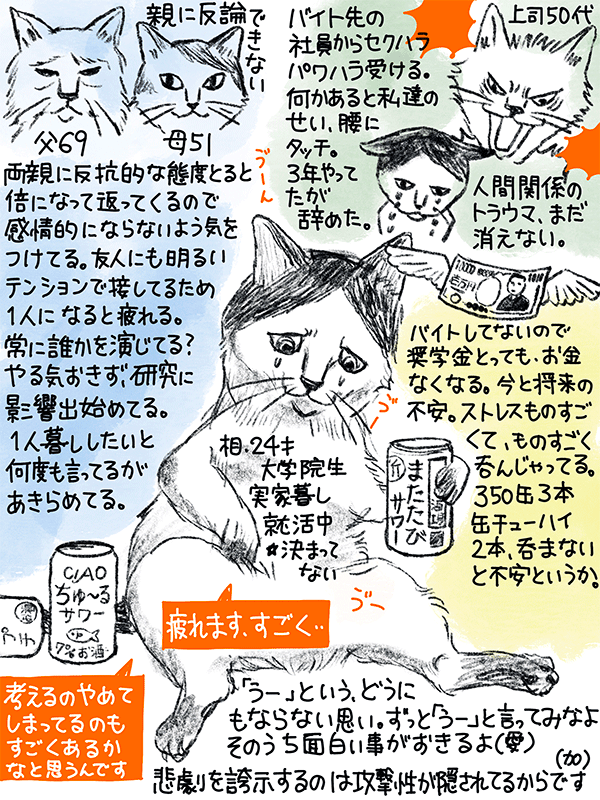 親に反論できない
父69
母51
両親に反抗的な態度とると
倍になって返ってくるので
感情的にならないよう気を
つけてる。友人にも明るい
テンションで接してるため
1人になると疲れる。
常に誰かを演じてる?
やる気おきず、研究に
影響出始めてる。
1人暮ししたいと
何度も言ってるが
あきらめてる。
バイト先の
社員からセクハラ
パワハラ受ける。
何かあると私達の
せい、腰に
タッチ。
3年やって
たが
辞めた。
上司50代
人間関係の
トラウマ、まだ
消えない。
ゔーん
10000
バイトしてないので
奨学金とっても、お金
なくなる。今と将来の
不安。ストレスものすご
くて、ものすごく
呑んじゃってる。
350缶3本
缶チューハイ
2本、呑まない
と不安というか。
相・24キ
大学院生
実家暮し
就活中
☆決まって
ない
ゔー
またたび
サワー
ゔー
CIAO
ちゅ〜る
サワー
7%お酒
疲れます、すごく‥
考えるのやめて
しまってるのも
すごくあるか
なと思うんです
「うー」という、どうに
もならない思い。ずっと「うー」と言ってみなよ
そのうち面白い事がおきるよ(愛)
(加)
悲劇を誇示するのは攻撃性が隠されてるからです